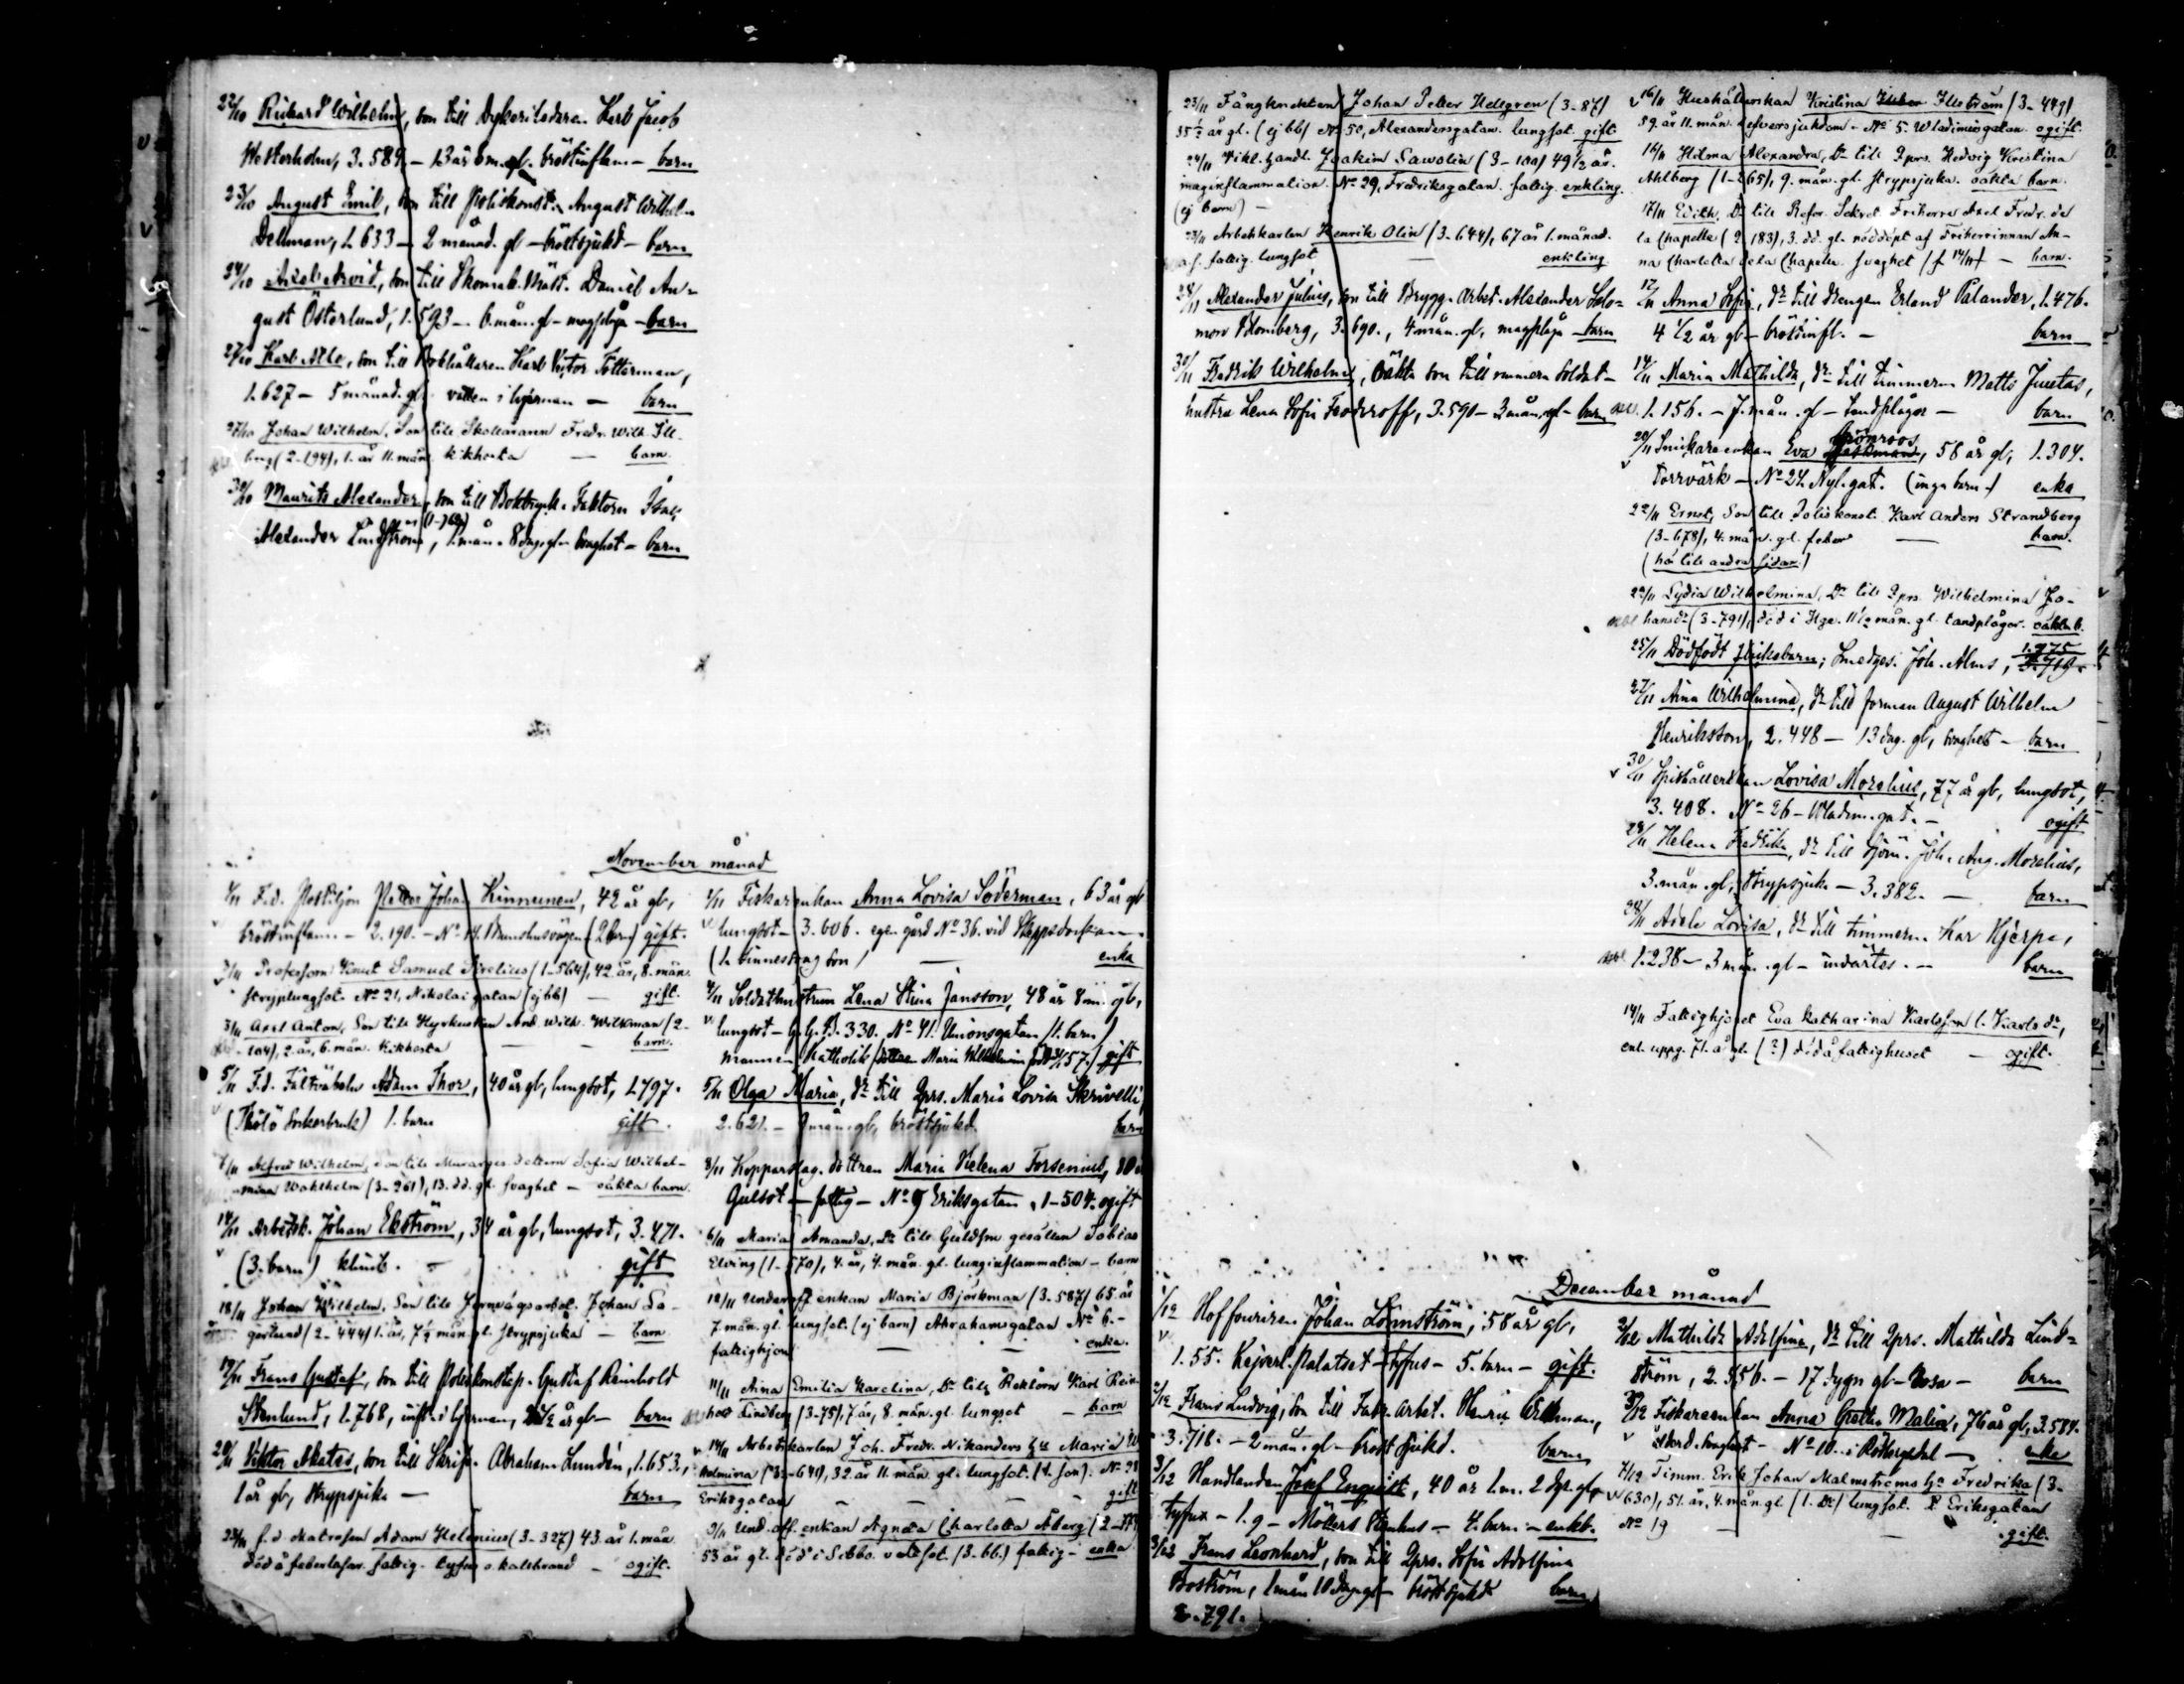 22/10 Rickard Wilhelm, son till Dykeriledaren Karl Jacob
Westerholm, 3.589 – 13 år 8 m. gl. bröstinflam – barn
23/10 August Emil, son till Poliskonst. August Wilhelm
Dellman, 1.633 – 2 månad. gl – bröstsjukd – barn
24/10 Axel Arvid, son till Skomak. Mäst. Daniel Au-
gust Österlund, 1.593 – 6. mån. gl – magplåga – barn
27/10 Karl Atle, son till Bokhållaren Karl Victor Totterman,
1.627 – 5 månad. gl. vatten i hjernan – barn
27/10 Johan Wilhelm, Son till Skolläraren Fredr. Wilh. Ill-
berg (2-194), 1. år 11. mån. kikhosta – barn.
30/10 Maurits Alexander, son till Boktryck. Faktorn Isak
Alexander Lindström, 1. mån. 8 dag. gl – svaghet – barn
November månad
1/11 F.d. Postiljon Petter Johan Kinnunen, 42 år gl,
bröstinflam – 2.190. – No 14. Brunnshusvägen (2 barn) gift.
3/11 Professorn Knut Samuel Sirelius (1-564), 42. år, 8. mån.
stryplungsot. No 21, Nikolaigatan (ej bb) – gift.
3/11 Axel Anton, Son till Hyrkusken And. Wilh. Wilkman (2-
104), 2. år, 6. mån. kikhosta – – barn.
5/11 F.d. Fältväbeln Adam Thor, 40 år gl, lungsot, 1.797.
(Thölö Sockerbruk) 1. barn gift.
7/11 Alfred Wilhelm, son till Murargesdottern Sofia Wilhel-
mina Wahlholm (3-261), 13. dd. gl. svaghet – oäkta barn.
14/11 Arbetsk. Johan Ekström, 34 år gl, lungsot, 3.471.
(3. barn) klinik. – gift
18/11 Johan Wilhelm, Son till Jernvägsarbet. Johan La-
gerlund (2-444) 1. år, 7½ mån. gl. strypsjuka – barn.
19/11 Frans Gustaf, son till Poliskonstap. Gustaf Reinhold
Stenlund, 1.768, infl. i hjernan, 2½ år gl – barn
20/11 Viktor Akates, son till Skrifv. Abraham Lundén, 1.653.,
1 år gl, strypsjuka – barn
23/11 f.d. Matrosen Adam Helenius (3-327) 43 år 1. mån.
död å feberlasar. fattig. tyfus o. kallbrand – ogift.
1/11 Fiskarenkan Anna Lovisa Söderman, 63 år gl
lungsot – 3.606. egen gård No 36. vid Skeppsdockan.
(1. sinnessvag son) – enka
4/11 Soldathustrun Lena Stina Jansson, 48 år 8 m. gl,
lungsot – G.G.B. 330. No 41. Unionsgatan (1. barn)
mannen Katholik gift
5/11 Olga Maria, dr till Qprs. Maria Lovisa Skrivelli
2.621. – 9 mån. gl, bröstsjukd. barn
8/11 Kopparslag. dottren Maria Helena Forsenius, 80
Gulsot – fattig – No 9 Eriksgatan, 1-504. ogift
6/11 Maria Amanda, Dr till Guldsm gesällen Tobias
Elving (1-570), 4. år, 4. mån. gl. lunginflammation – barn
12/11 Underoff. enkan Maria Björkman (3-587) 65 år
7. mån. gl. lungsot. (ej barn) Abrahamsgatan No 6. –
fattighjon – – enka.
11/11 Aina Emilia Karolina, Dr till Rektorn Karl Rein-
hold Lindberg (3-75), 7 år, 8. mån. gl. lungsot – barn
14/11 Arbetskarlen Joh. Fredr. Nikanders hu Maria W
helmina (3-641), 32. år 11. mån. gl. lungsot. (1. son). No 28
Eriksgatan – – – gift
9/11 Und. off. enkan Agneta Charlotta Åberg
53 år gl. död i Sibbo. vattsot. (3. bb.) fattig – enka
23/11 Fångknekten Johan Petter Hellgren (3-87)
35½ år gl. (ej bb) No 50, Alexandersgatan. lungsot. gift.
24/11 Vikt. handl. Joakim Sawolin (3-100) 49½ år.
maginflammation. No 29, Fredriksgatan. fattig. enkling.
(ej barn) –
23/11 Arbetskarlen Henrik Olin (3-644), 67 år 1. månad.
fattig. lungsot – enkling
28/11 Alexander Julius, son till Brygg. arbet. Alexander Salo-
mon Blomberg, 3.690., 4 mån. gl, magplåga – barn
30/11 Fredrik Wilhelm, oäkta son till rommern Soldat-
hustru Lena Sofia Feodoroff, 3.590 – 3 mån. gl – barn
16/11 Hushållerskan Kristina Illström (3-449)
59 år 11. mån. lefversjukdom – No 5. Wladimirsgatan. ogift.
16/11 Hilma Alexandra, Dr till Qprs. Hedvig Kristina
Ahlberg (1-265), 9. mån. gl. strypsjuka. oäkta barn.
17/11 Edith, Dr till Refer. Sekret. Friherre Axel Fredr. de
la Chapelle (2.183), 3. dd. gl. nöddöpt af Friherrinnan An-
na Charlotta de la Chapelle. svaghet (f 14/11) – barn.
17/11 Anna Sofia, dr till Drengen Erland Palander, 1.476.
4½ år gl – bröstinfl. – barn
14/11 Maria Mathilda, dr till timmerm Matts Juutas,
1.156. – 7. mån. gl – tandplågor – barn
20/11 Snickareenkan Eva Grönroos, 58 år gl, 1.304.
Torrvärk – No 24. Nyl. gat. (inga barn –) enka
22/11 Ernst, Son till Poliskonst. Karl Anders Strandberg
(3-678), 4. mån. gl. feber – barn.
(hör till andra sidan)
22/11 Lydia Wilhelmina, Dr till Qprs. Wilhelmina Jo-
hansdr (3-791) död i Hga. 11½ mån. gl. tandplågor. oäkta b.
25/11 Dödfödt flickebarn; Smedges. Joh. Alms, 1.975
27/11 Aina Wilhelmina, dr till forman August Wilhelm
Henriksson, 2.448 – 13 dag. gl, svaghet – barn
30/11 Spishållerskan Lovisa Morelius, 77 år gl, lungsot,
3.408. No 26 – Wladim. gat. – ogift
28/11 Helena Fredrika, dr till Sjöm. Joh. Aug. Morelius,
3. mån. gl, strypsjuka – 3.382. – barn
28/11 Adele Lovisa, dr till timmerm. Kar Hjerpe,
1.238 – 3 mån. gl – invärtes. – barn
14/11 Fattighjonet Eva Katharina Karlsson l. Karlsdr,
enl. uppg. 71. år gl. (?) död å fattighuset – ogift.
December månad
1/12 Hoffouriren Johan Lönnström, 58 år gl,
1.55. Kejserl. palatset – tyfus – 5. barn – gift.
2/12 Frans Ludvig, son till Fabr. arbet. Henric Wikman,
3.718. – 2 mån. gl – bröstsjukd. barn
3/12 Handlanden Josef Enqvist, 40 år 1. m. 2 dgr. gl,
tyfus – 1.9 – Möllers Stenhus – 4. barn – enkl.
3/12 Frans Leonhard, son till Qprs. Sofia Adolfina
Boström, 1 mån 10 dag. gl – bröstsjukd barn
2.791.
2/12 Mathilda Adolfina, dr till Qprs. Mathilda Lind-
ström, 2.356. – 17 dygn gl – Rosa – barn
3/12 Fiskareenkan Anna Greta Malin, 76 år gl, 3.584.
ålderd. svaghet – No 10. i Rödbergsdal – enka
7/12 Timm. Erik Johan Malmströms ha Fredrika (3-
630), 51. år, 4. mån. gl. (1. Dr) lungsot. L Eriksgatan
No 19 – – gift.